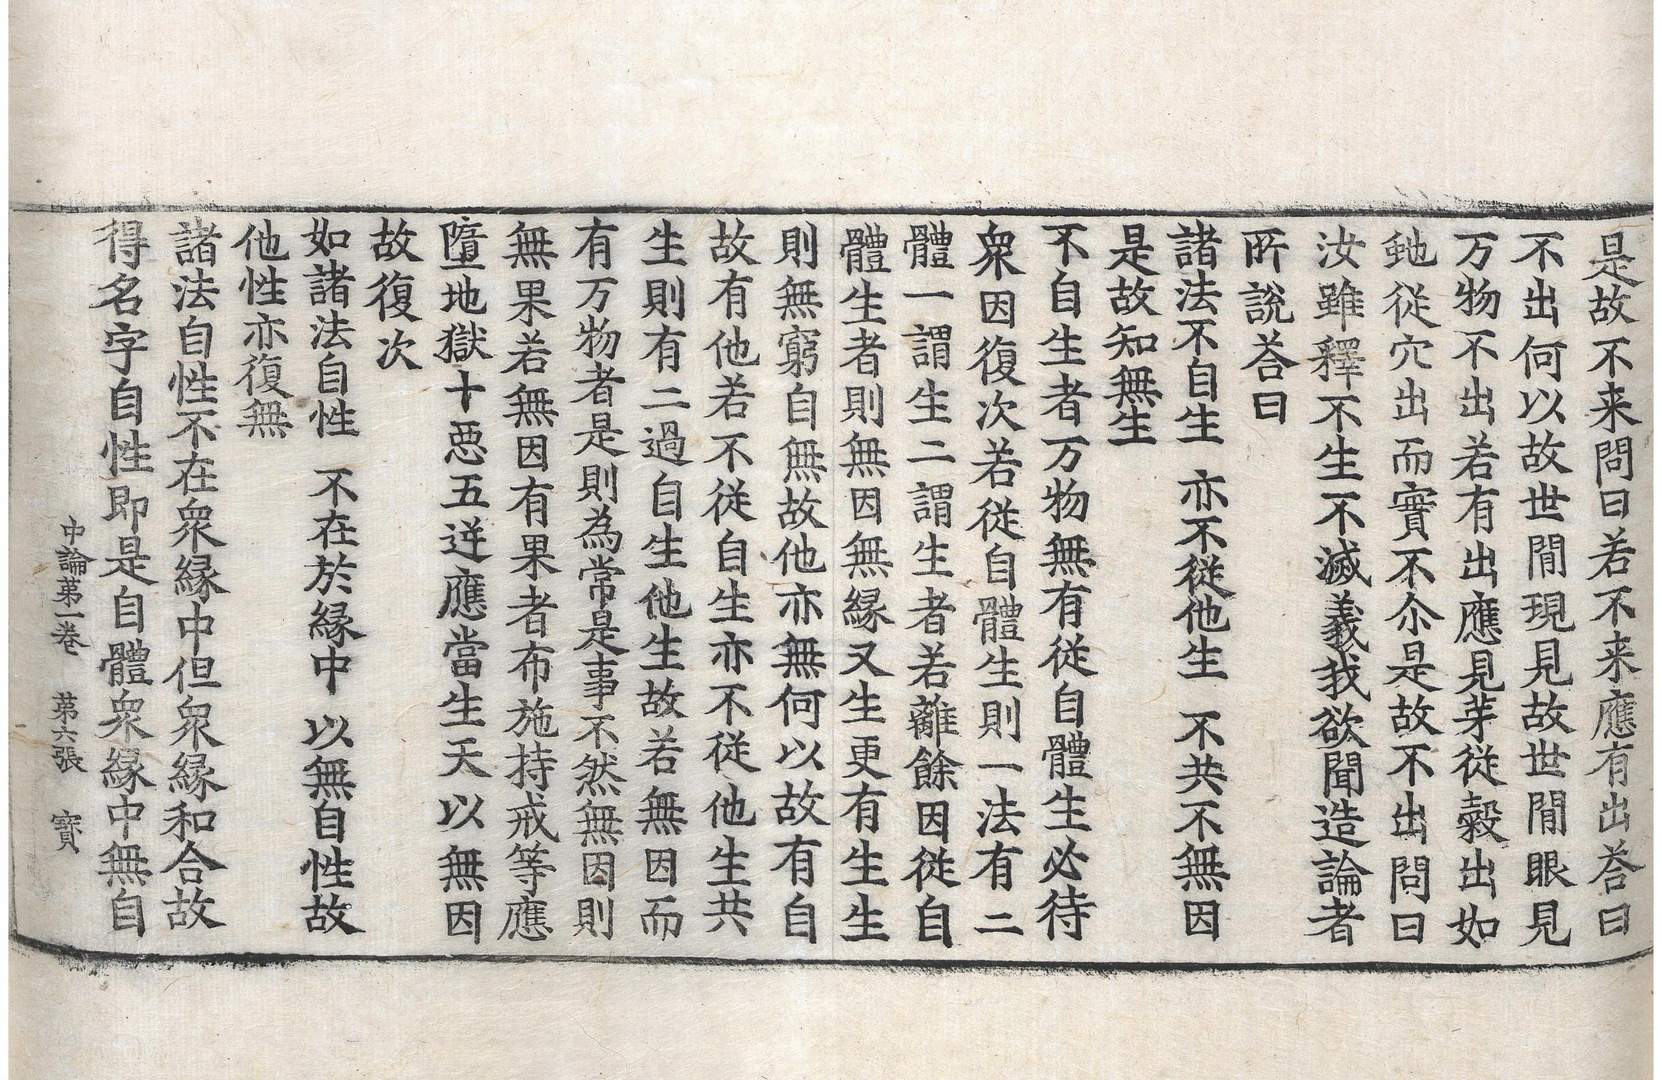 是故不来問曰若不来應有出荅曰
不出何以故世閒現見故世閒眼見
万物不出若有出應見芽從穀出如
虵從穴出而實不尒是故不出問曰
汝雖釋不生不滅義我欲聞造論者
所說荅曰
諸法不自生　亦不從他生　不共不無因
是故知無生
不自生者万物無有從自體生必待
衆因復次若從自體生則一法有二
體一謂生二謂生者若離餘因從自
體生者則無因無縁又生更有生生
則無窮自無故他亦無何以故有自
故有他若不從自生亦不從他生共
生則有二過自生他生故若無因而
有万物者是則為常是事不然無因則
無果若無因有果者布施持戒等應
墮地獄十惡五逆應當生天以無因
故復次
如諸法自性　不在於縁中　以無自性故
他性亦復無
諸法自性不在衆縁中但衆縁和合故
得名字自性即是自體衆縁中無自
中論第一卷　第六張　寶